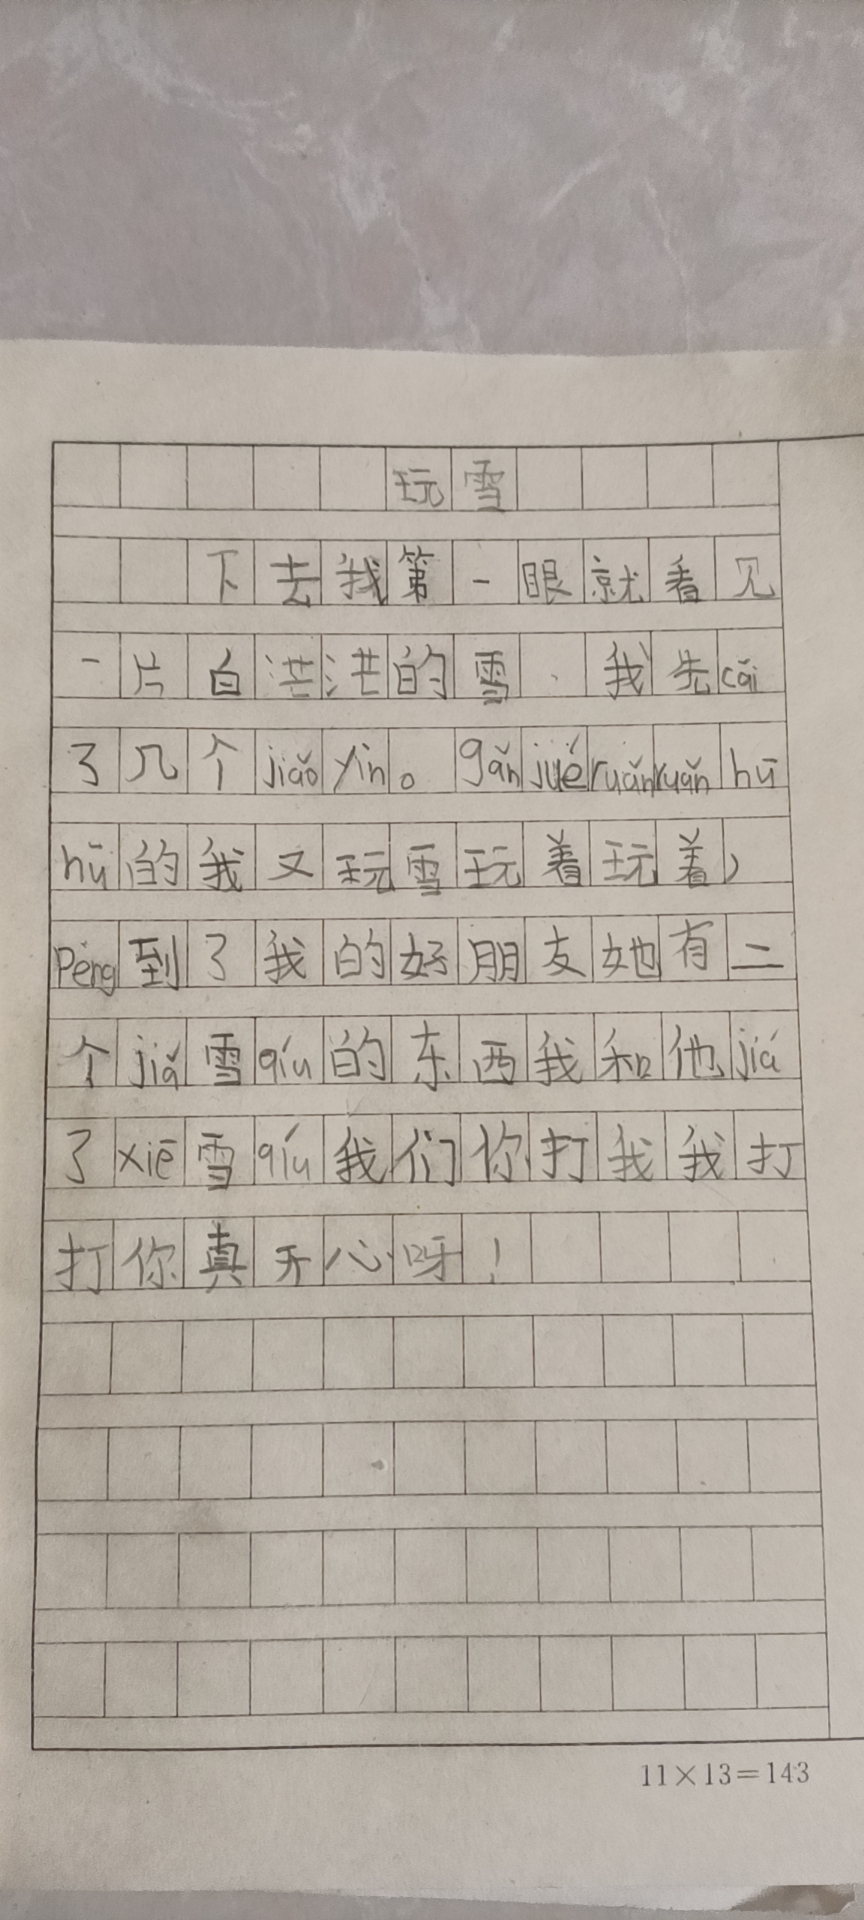 玩雪
下去我第一眼就看见
一片白茫茫的雪.我先cǎi
了几个jiǎo yìn。gǎn jué ruǎn ruǎn hū
hū的我又玩雪玩着玩着,
Pèng到了我的好朋友她有二
个jiā雪qíu的东西我和他jiá
了xiē雪qíu我们你打我我打
打你真开心呀!
11×13=143